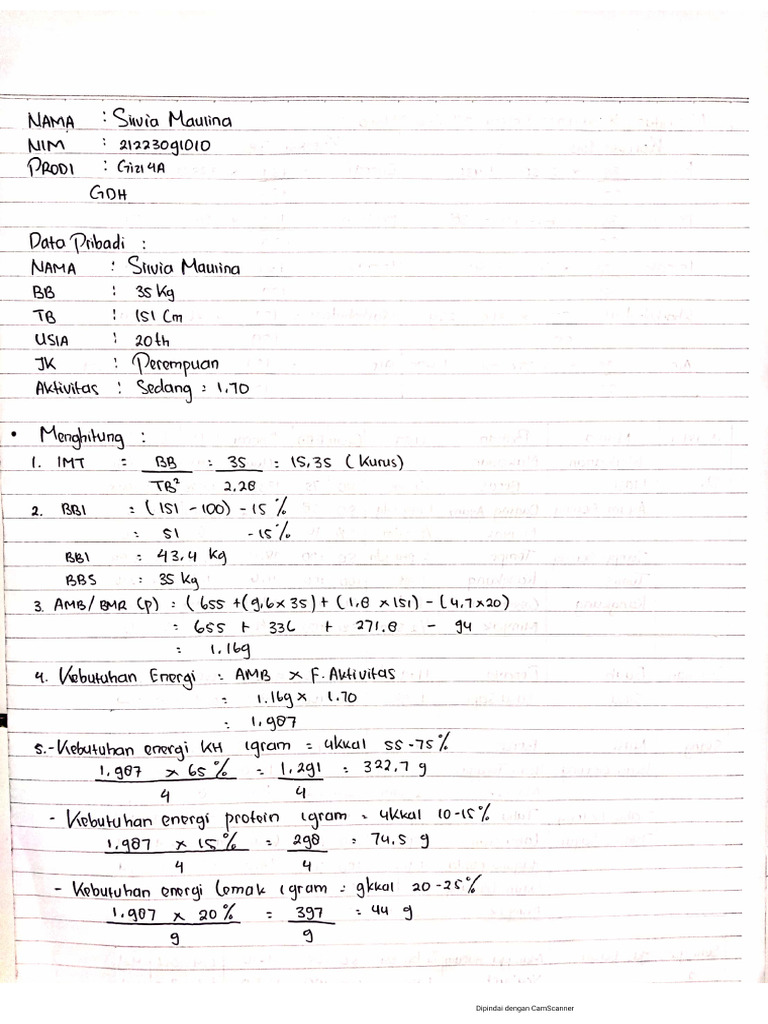 NAMA : Silvia Maulina
NIM : 21223091010
PRODI : Gizi 4A
GDH
Data Pribadi :
NAMA : Silvia Maulina
BB : 35 Kg
TB : 151 Cm
USIA : 20 th
JK : Perempuan
Aktivitas : Sedang : 1.70
• Menghitung :
1. IMT = BB : 35 : 15,35 (Kurus)
TB² 2.28
2. BBI : (151 - 100) - 15 %
: 51 - 15 %
BBI : 43,4 kg
BBS : 35 kg
3. AMB/BMR (P) : (655 + (9,6 x 35) + (1,8 x 151) - (4,7 x 20)
= 655 + 336 + 271.8 - 94
= 1.169
4. Kebutuhan Energi : AMB x F. Aktivitas
= 1.169 x 1.70
= 1.987
5. - Kebutuhan energi KH 1gram = 4kkal 55-75%
1.987 x 65 % = 1.291 = 322.7 g
4 4
- Kebutuhan energi protein 1gram = 4kkal 10-15%
1.987 x 15 % = 298 = 74.5 g
4 4
- Kebutuhan energi Lemak 1gram = 9kkal 20-25%
1.987 x 20 % = 397 = 44 g
9 9
Dipindai dengan CamScanner